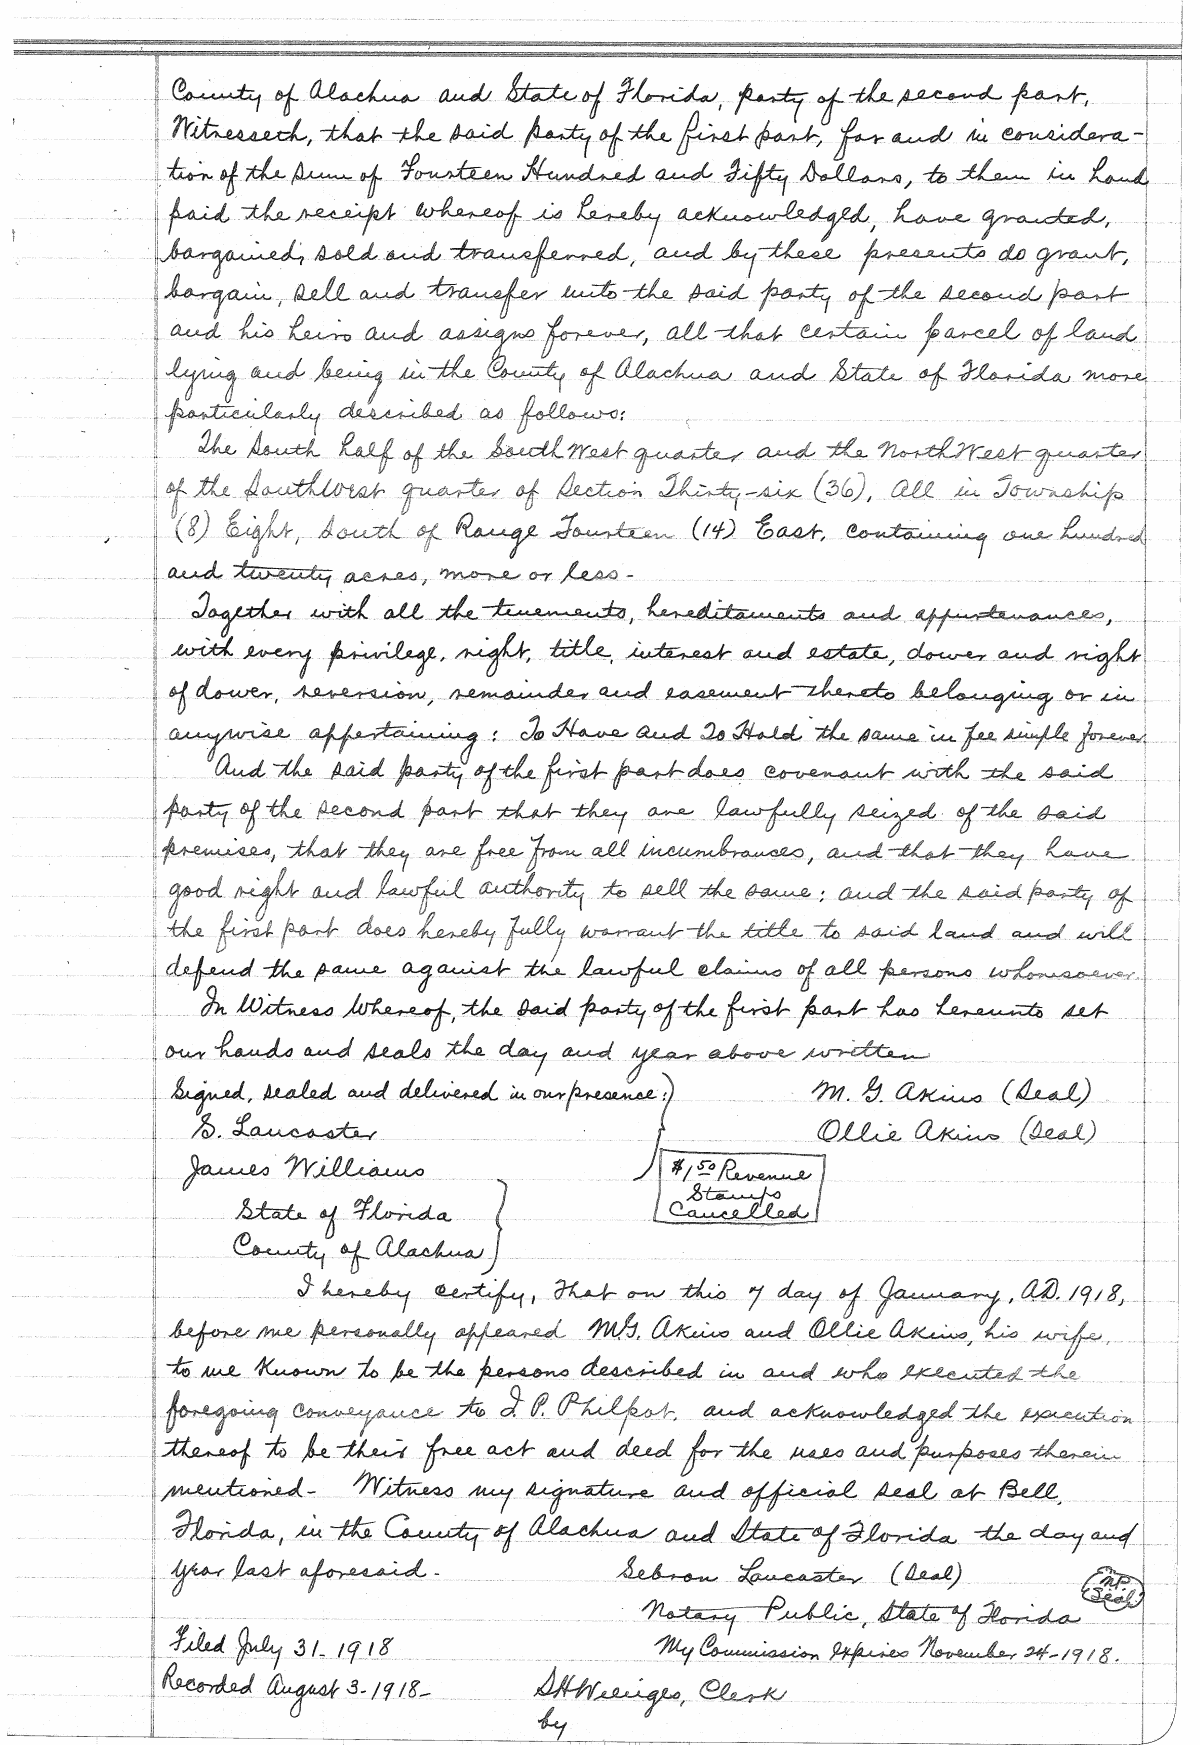 County of Alachua and State of Florida, party of the second part,
Witnesseth, that the said party of the first part, for and in considera-
tion of the sum of Fourteen Hundred and Fifty Dollars, to them in hand
paid the receipt whereof is hereby acknowledged, have granted,
bargained, sold and transferred, and by these presents do grant,
bargain, sell and transfer unto the said party of the second part
and his heirs and assigns forever, all that certain parcel of land
lying and being in the County of Alachua and State of Florida more
particularly described as follows:
The South half of the SouthWest quarter and the NorthWest quarter
of the SouthWest quarter of Section Thirty-six (36), All in Township
(8) Eight, South of Range Fourteen (14) East, containing one hundred
and twenty acres, more or less-
Together with all the tenements, hereditaments and appurtenances,
with every privilege, right, title, interest and estate, dower and right
of dower, reversion, remainder and easement thereto belonging or in
anywise appertaining: To Have and To Hold the same in fee simple forever
And the said party of the first part does covenant with the said
party of the second part that they are lawfully seized of the said
premises, that they are free from all incumbrances, and that they have
good right and lawful authority to sell the same; and the said party of
the first part does hereby fully warrant the title to said land and will
defend the same against the lawful claims of all persons whomsoever.
In Witness Whereof, the said party of the first part has hereunto set
our hands and seals the day and year above written
Signed, sealed and delivered in our presence:) M. G. Akins (Seal)
S. Lancaster Ollie Akins (Seal)
James Williams $1.50 Revenue
Stamps
Cancelled
State of Florida
County of Alachua
I hereby certify, That on this 7 day of January, A.D. 1918,
before me personally appeared M.G. Akins and Ollie Akins, his wife,
to me Known to be the persons described in and who executed the
foregoing conveyance to I. P. Philpot, and acknowledged the execution
thereof to be their free act and deed for the uses and purposes therein
mentioned- Witness my signature and official seal at Bell,
Florida, in the County of Alachua and State of Florida the day and
year last aforesaid. Sebron Lancaster (Seal)
N.P. Seal
Notary Public, State of Florida
Filed July 31-1918 My Commission expires November 24-1918.
Recorded August 3-1918- S H Wienges, Clerk
by